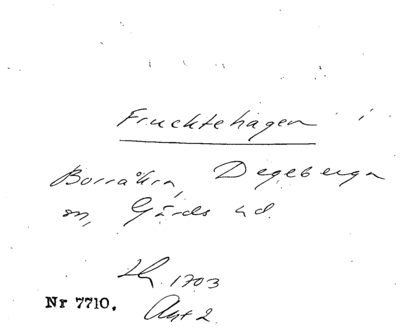 Fruchtehagen i
Borråkra, Degeberga
sn, Gärds hd.
1703
Nr 7710. Akt 2